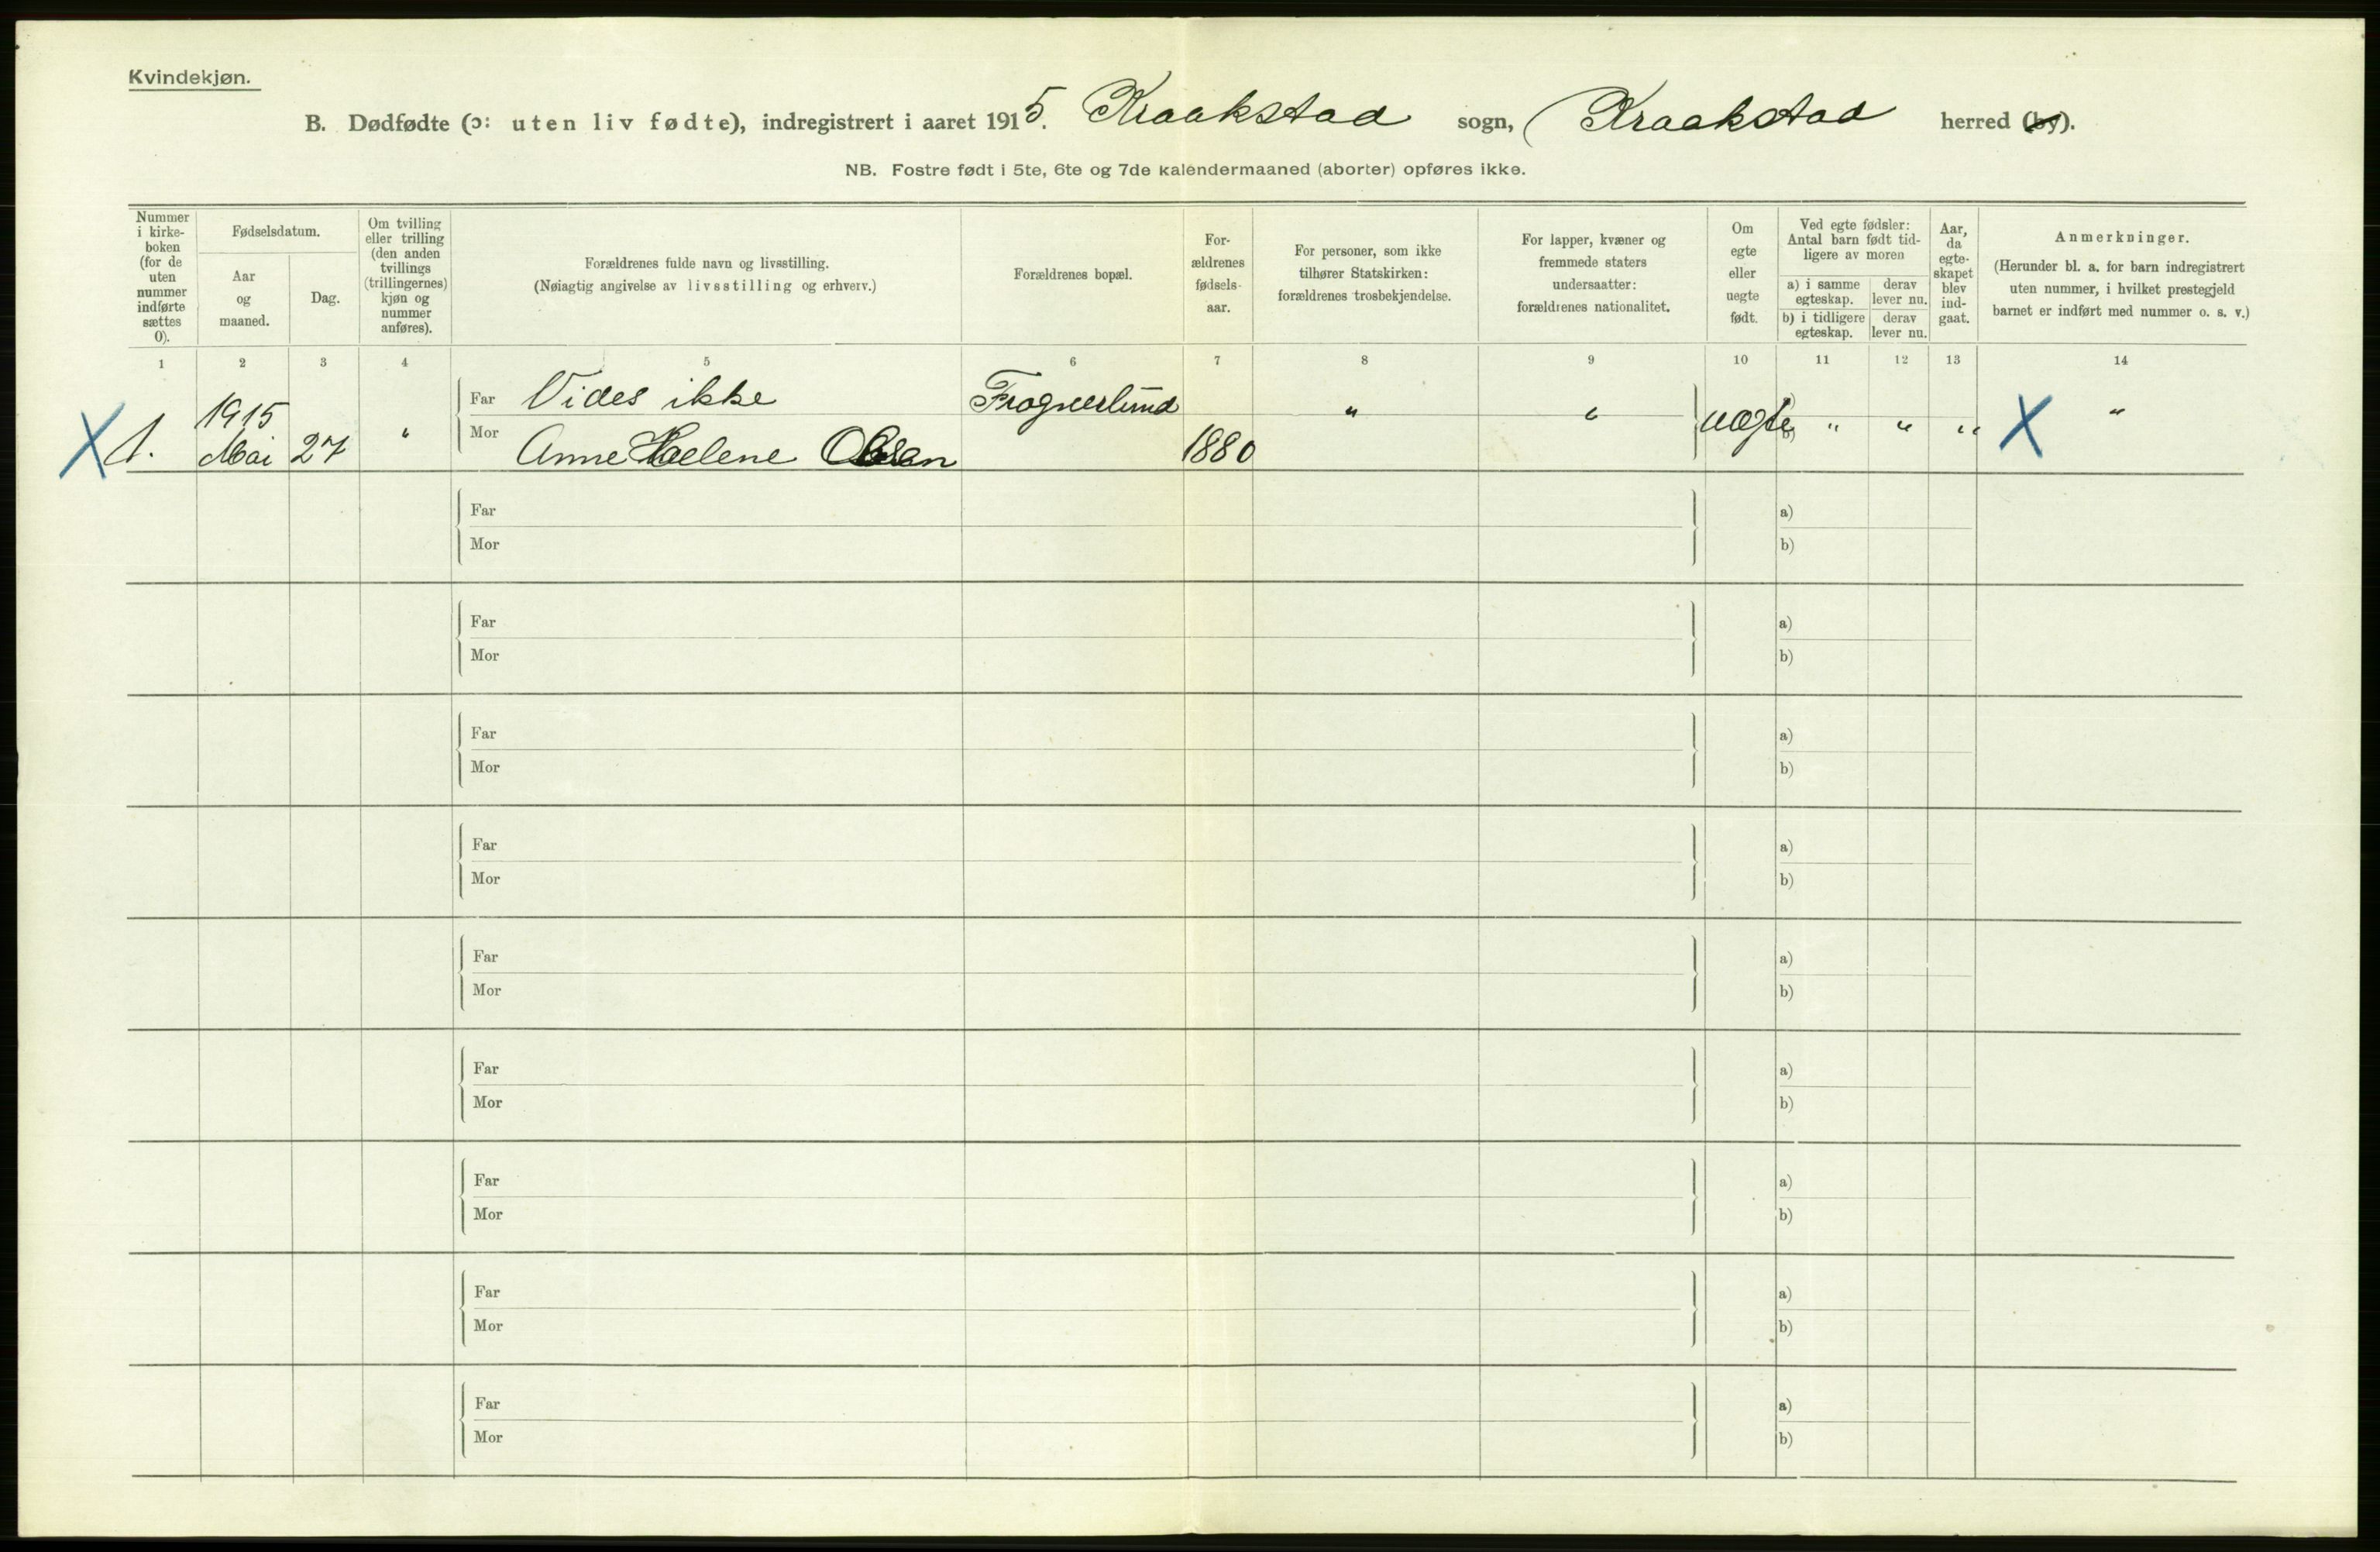 Kvindekjøn.
B. Dødfødte (ɔ: uten liv fødte), indregistrert i aaret 1915. Kraakstad sogn, Kraakstad herred (by).
NB. Fostre født i 5te, 6te og 7de kalendermaaned (aborter) opføres ikke.
Nummer
i kirke-
boken
(for de
uten
nummer
indførte
sættes
0).
Fødselsdatum.
Aar
og
maaned.
Dag.
Om tvilling
eller trilling
(den anden
tvillings
(trillingernes)
kjøn og
nummer
anføres).
Forældrenes fulde navn og livsstilling.
(Nøiagtig angivelse av livsstilling og erhverv.)
Forældrenes bopæl.
For-
ældrenes
fødsels-
aar.
For personer, som ikke
tilhører Statskirken:
forældrenes trosbekjendelse.
For lapper, kvæner og
fremmede staters
undersaatter:
forældrenes nationalitet.
Om
egte
eller
uegte
født.
Ved egte fødsler:
Antal barn født tid-
ligere av moren
a) i samme
egteskap.
derav
lever nu.
b) i tidligere
egteskap.
derav
lever nu.
Aar,
da
egte-
skapet
blev
ind-
gaat.
Anmerkninger.
(Herunder bl. a. for barn indregistrert
uten nummer, i hvilket prestegjeld
barnet er indført med nummer o. s. v.)
1 2 3 4 5 6 7 8 9 10 11 12 13 14
X 1. 1915 Mai 27 " Far Vides ikke Frognerlund " " uegte " " " X "
Mor Anne Helene Olsen 1880 b)
Far a)
Mor b)
Far a)
Mor b)
Far a)
Mor b)
Far a)
Mor b)
Far a)
Mor b)
Far a)
Mor b)
Far a)
Mor b)
Far a)
Mor b)
Far a)
Mor b)